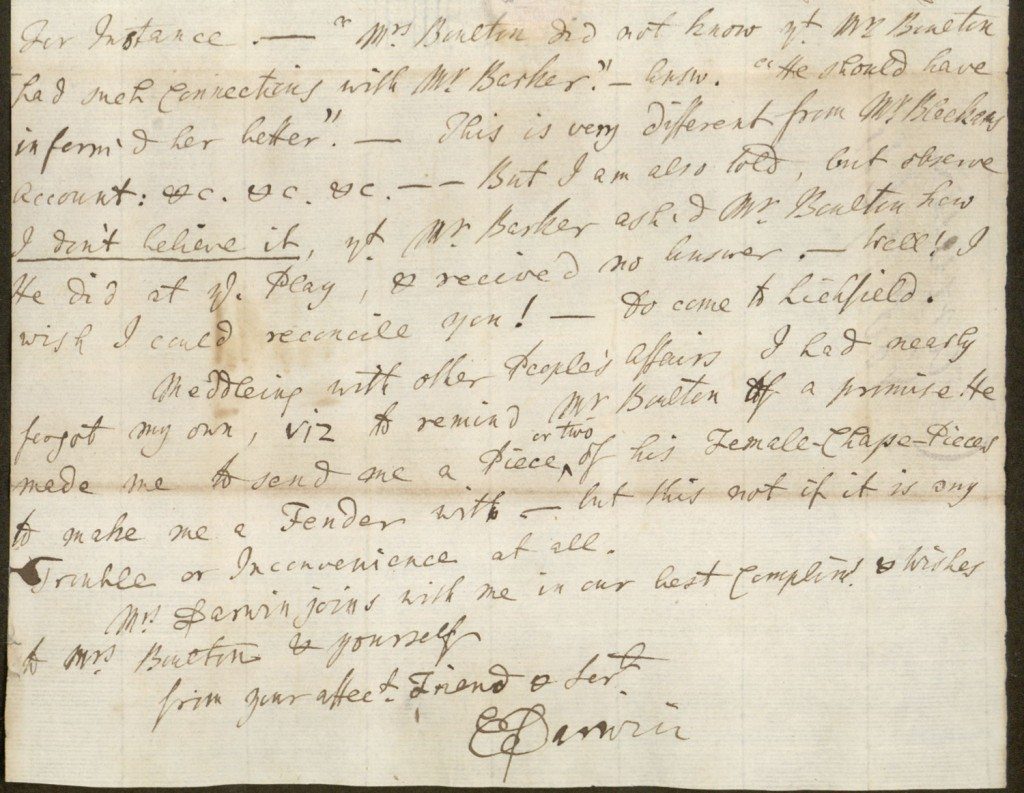 For Instance. — "Mrs Boulton did not know yt. Mr Boulton
had such Connections with Mr Barker." — Answ. "He should have
inform'd her better". — This is very different from Mr
Account: &c. &c. &c. — — But I am also told, but observe
I don't believe it, yt. Mr Barker ask'd Mr. Boulton how
He did at ye. Play, & recived no Answer. — Well! I
wish I could reconcile you! — Do come to Lichfield.
Meddleing with other People's Affairs I had nearly
forgot my own, viz to remind Mr Boulton of a promise He
made me to send me a Piece or two of his Female-Chape-Pieces
to make me a Fender with — but this not if it is any
Trouble or Inconvenience at all.
Mrs Darwin joins with me in our best Complims. & Wishes
to Mrs Boulton & yourself
from your affect. Friend & Sert.
E Darwin